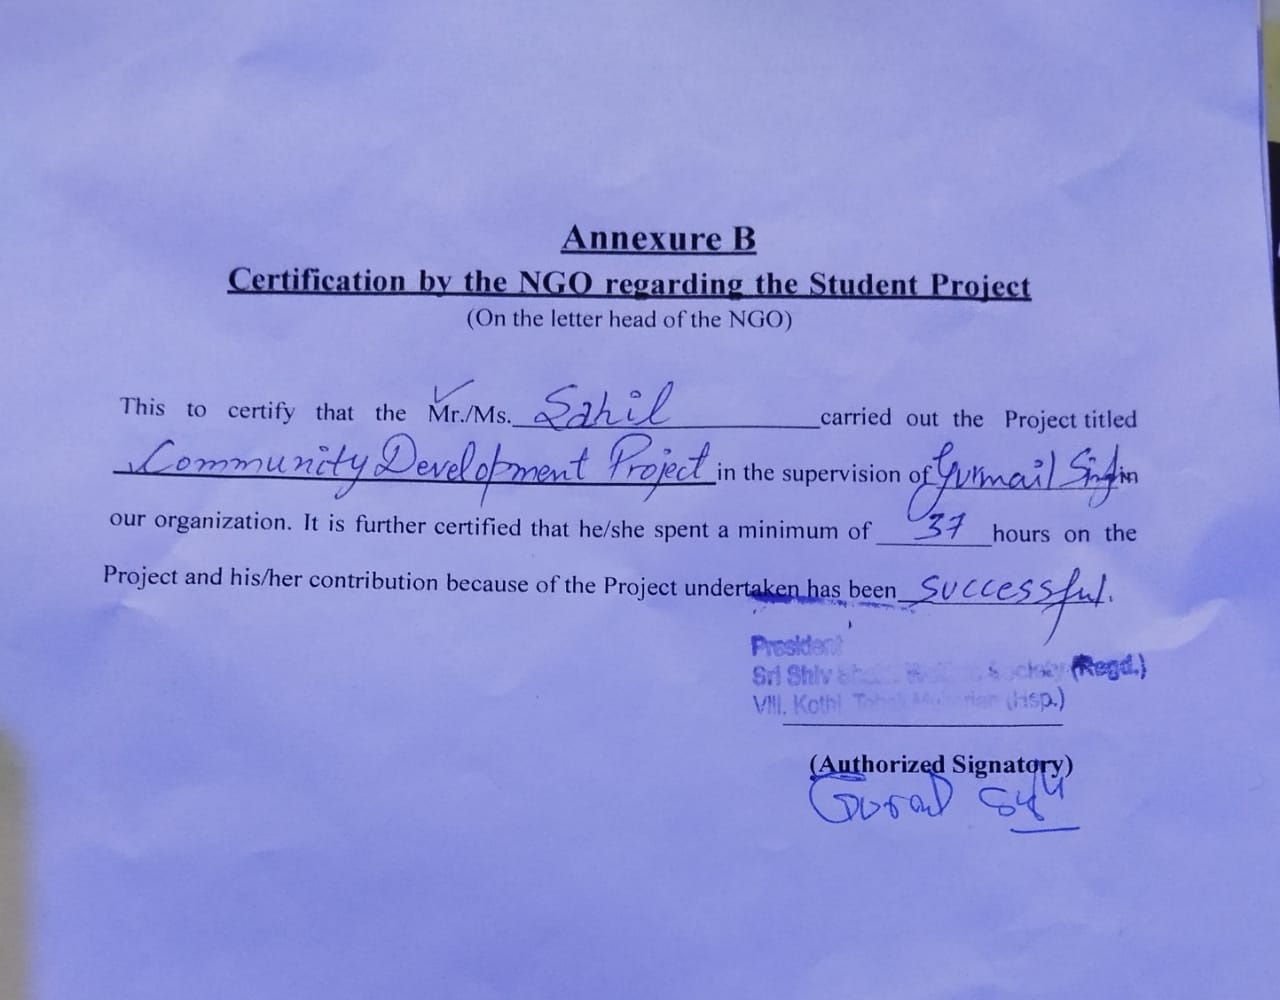 Annexure B
Certification by the NGO regarding the Student Project
(On the letter head of the NGO)
This to certify that the Mr./Ms. Sahil carried out the Project titled
Community Development Project in the supervision of Gurmail Singh in
our organization. It is further certified that he/she spent a minimum of 37 hours on the
Project and his/her contribution because of the Project undertaken has been successful.
President
Sri Shiv Society (Regd.)
Vill. Kothi (Hsp.)
(Authorized Signatory)